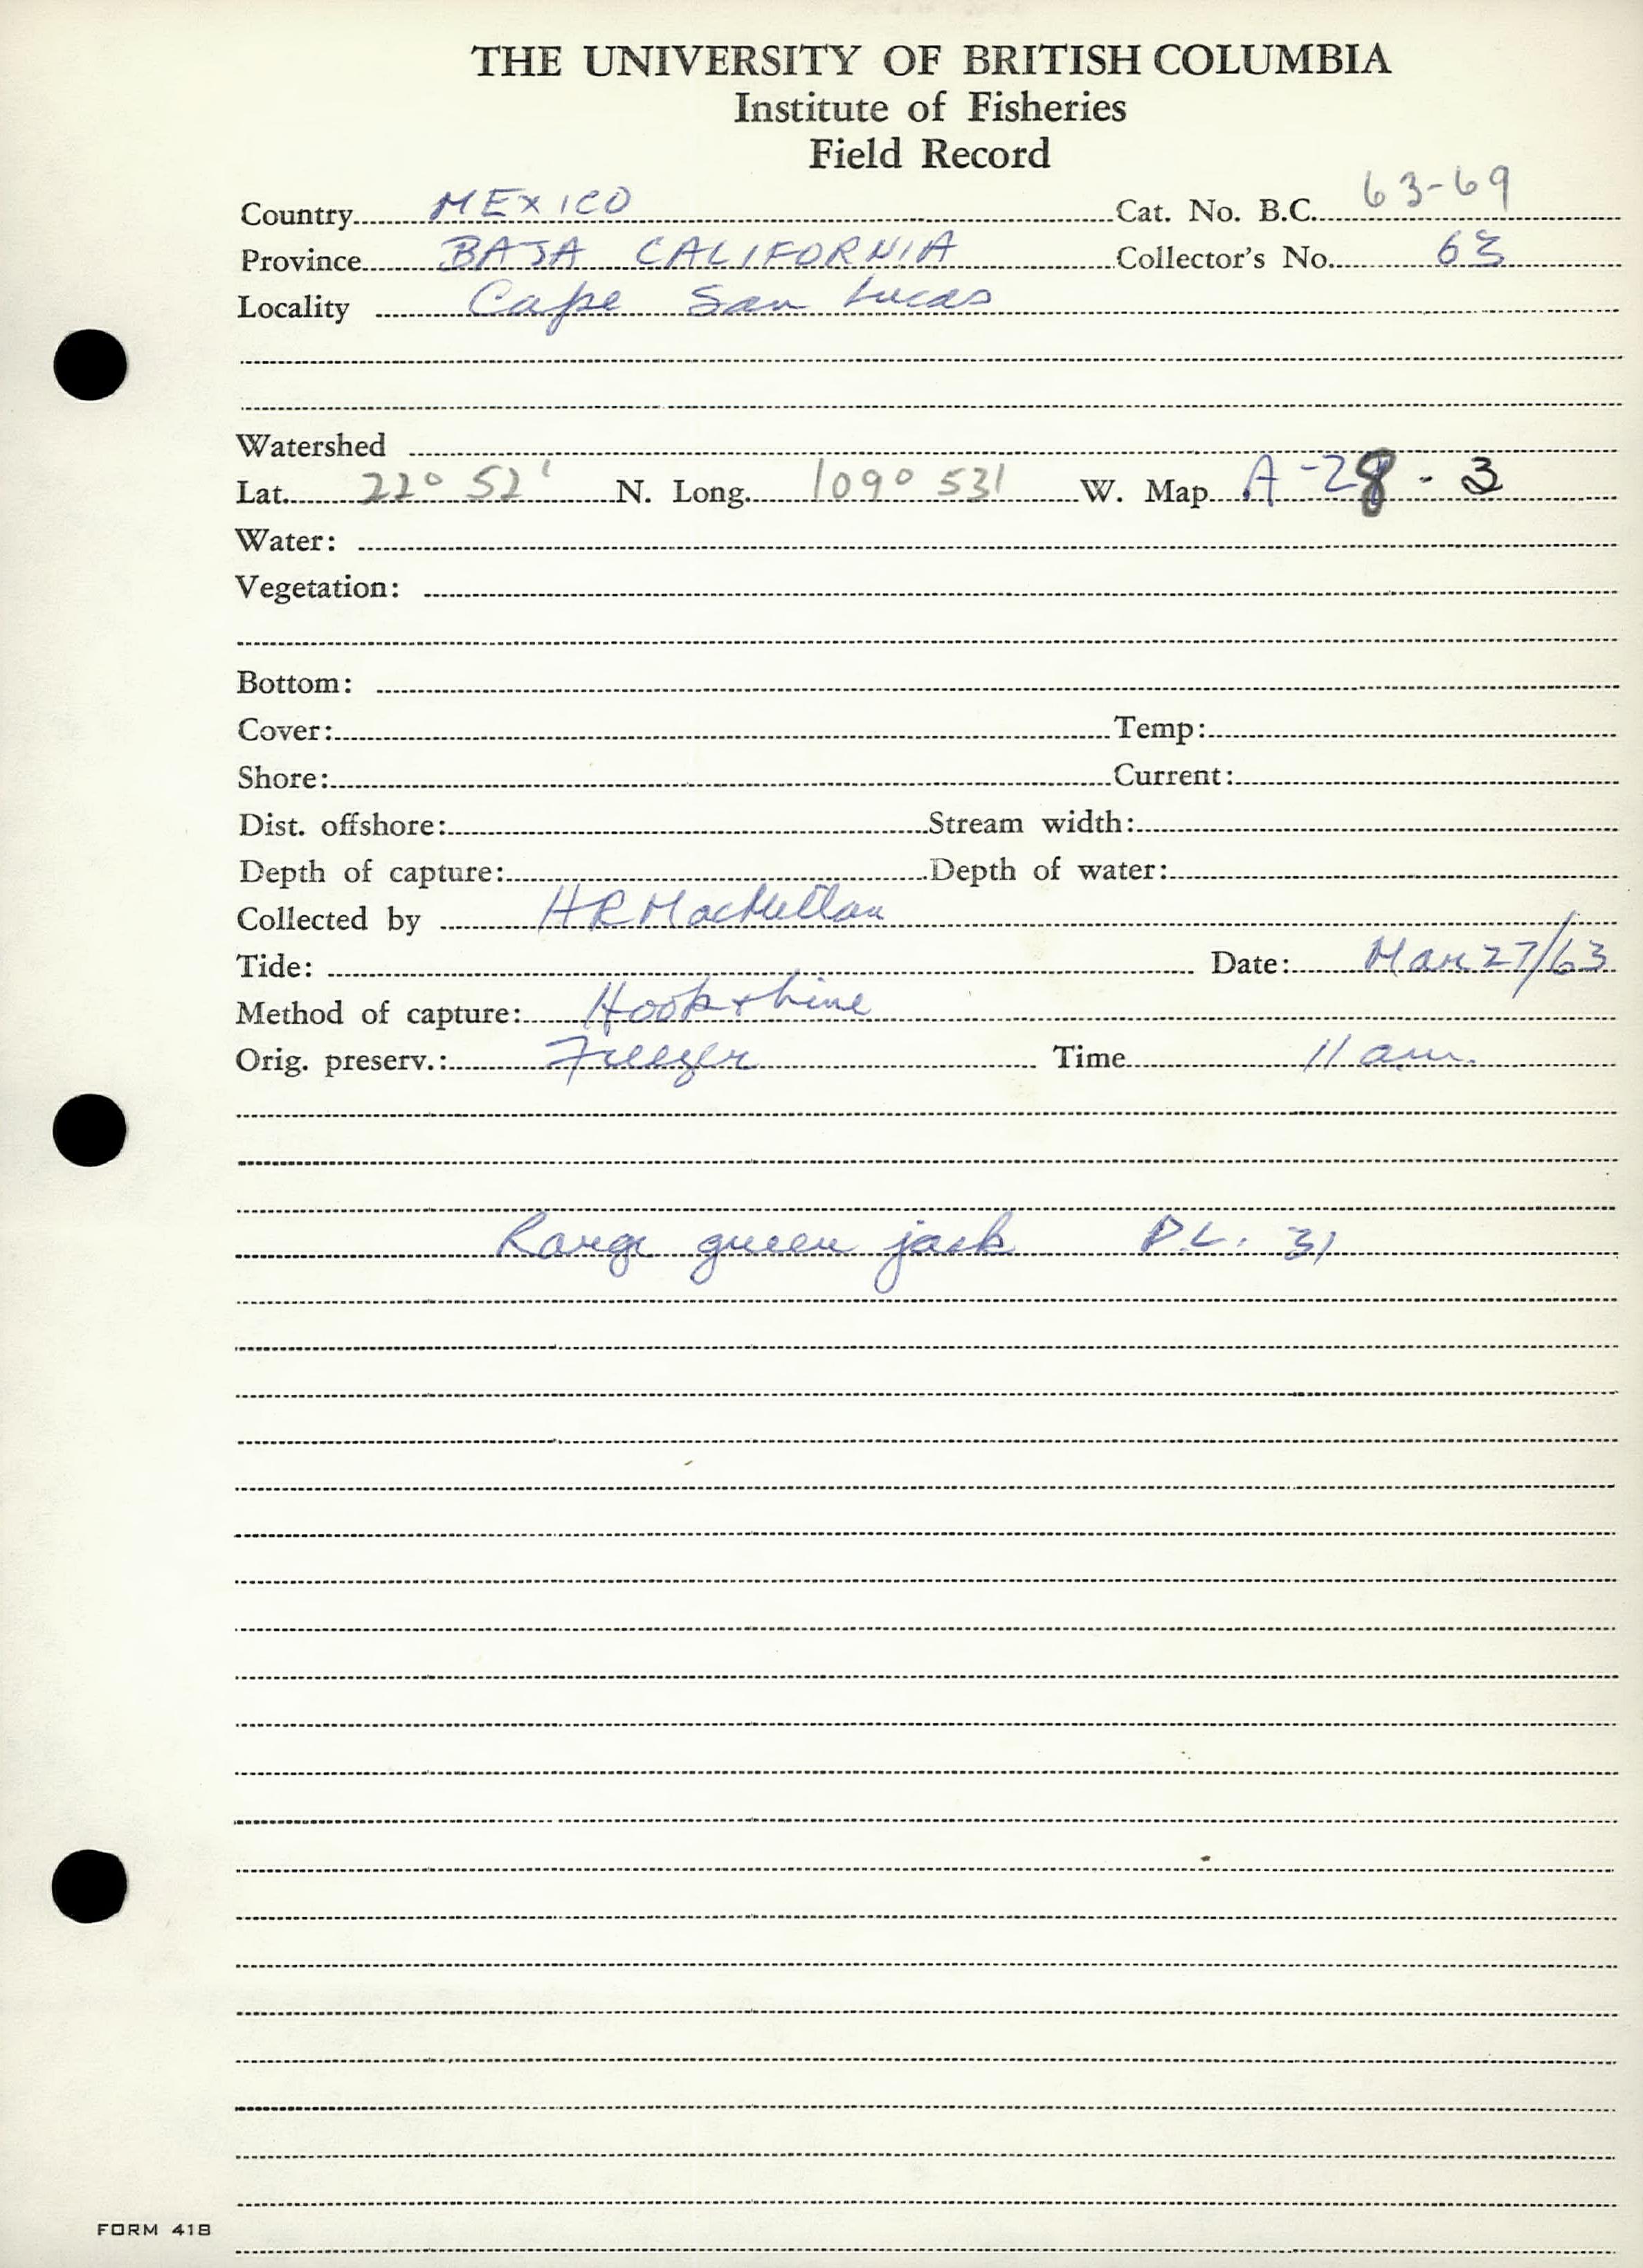 THE UNIVERSITY OF BRITISH COLUMBIA
Institute of Fisheries
Field Record
Country MEXICO Cat. No. B.C. 63-69
Province BAJA CALIFORNIA Collector's No. 63
Locality Cape San Lucas
Watershed
Lat. 22° 52' N. Long. 109° 53' W. Map A-28-3
Water:
Vegetation:
Bottom:
Cover: Temp:
Shore: Current:
Dist. offshore: Stream width:
Depth of capture: Depth of water:
Collected by HRMacMillan
Tide: Date: Mar 27/63
Method of capture: Hook & Line
Orig. preserv.: Freezer Time 11 a.m.
green jack P.L. 31
FORM 418